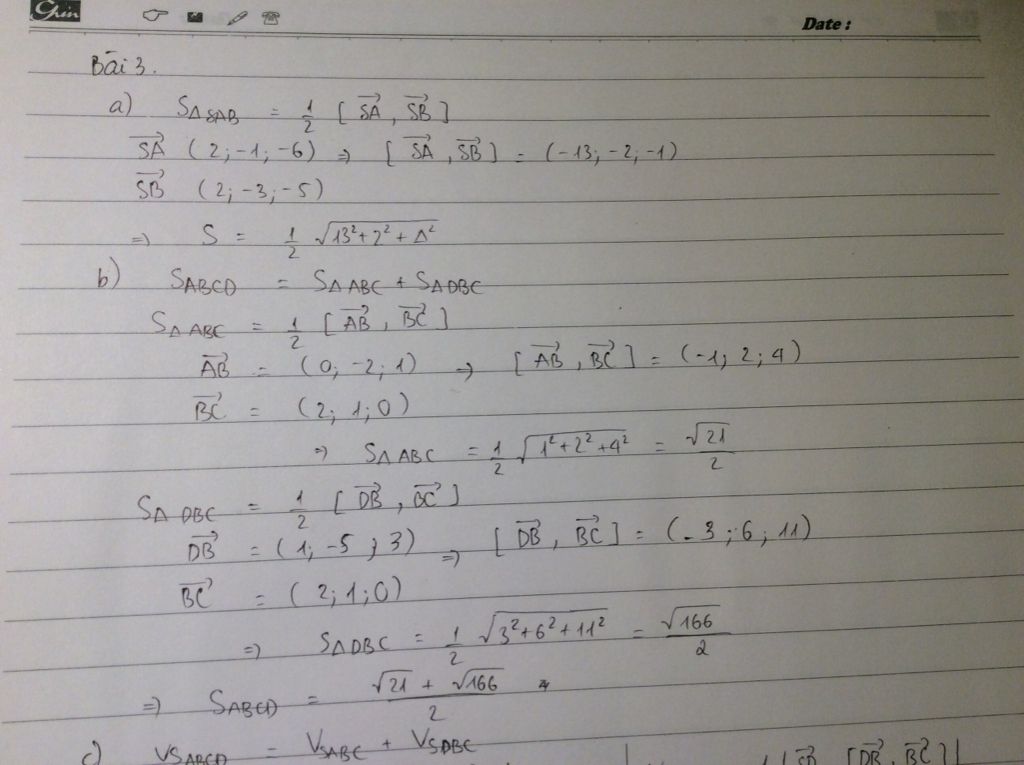 Date :
Bài 3.
a) S△SAB = 1/2 [SA→, SB→]
SA→ (2; -1; -6) ⇒ [SA→, SB→] = (-13; -2; -1)
SB→ (2; -3; -5)
⇒ S = 1/2 √(13² + 2² + 1²)
b) SABCD = S△ABC + S△DBC
S△ABC = 1/2 [AB→, BC→]
AB→ = (0; -2; 1) → [AB→, BC→] = (-1; 2; 4)
BC→ = (2; 1; 0)
⇒ S△ABC = 1/2 √(1² + 2² + 4²) = √21/2
S△DBC = 1/2 [DB→, BC→]
DB→ = (1; -5; 3) ⇒ [DB→, BC→] = (-3; 6; 11)
BC→ = (2; 1; 0)
⇒ S△DBC = 1/2 √(3² + 6² + 11²) = √166/2
⇒ SABCD = (√21 + √166)/2
c) VSABCD = VSABC + VSDBC
[DB→, BC→]|